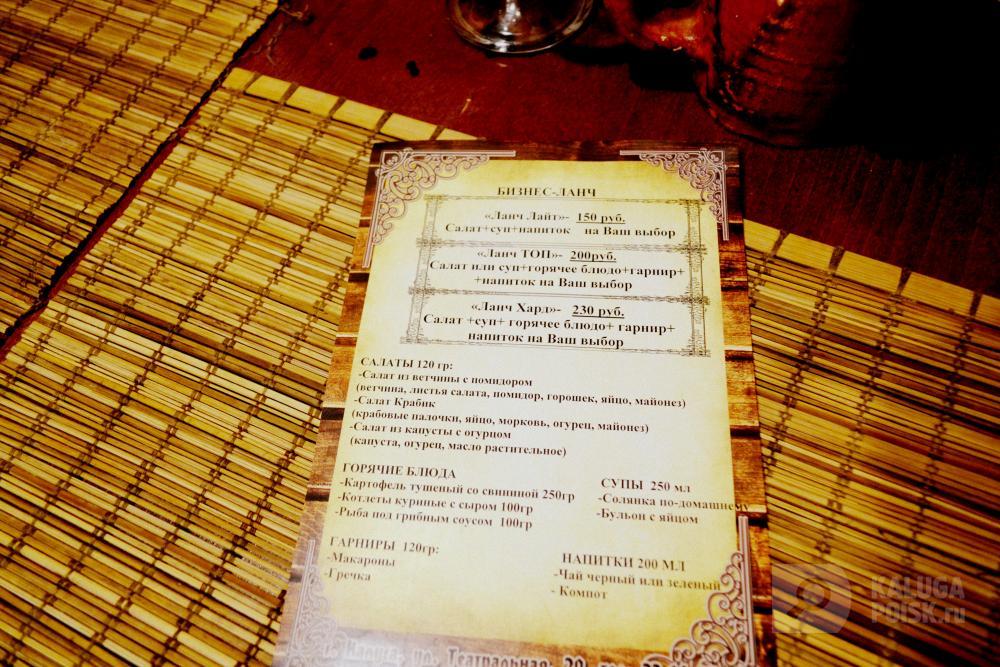 БИЗНЕС-ЛАНЧ
«Ланч Лайт»- 150 руб.
Салат+суп+напиток на Ваш выбор
«Ланч ТОП»- 200руб.
Салат или суп+горячее блюдо+гарнир+
+напиток на Ваш выбор
«Ланч Хард»- 230 руб.
Салат +суп+ горячее блюдо+ гарнир+
напиток на Ваш выбор
САЛАТЫ 120 гр:
-Салат из ветчины с помидором
(ветчина, листья салата, помидор, горошек, яйцо, майонез)
-Салат Крабик
(крабовые палочки, яйцо, морковь, огурец, майонез)
-Салат из капусты с огурцом
(капуста, огурец, масло растительное)
ГОРЯЧИЕ БЛЮДА
-Картофель тушеный со свининой 250гр
-Котлеты куриные с сыром 100гр
-Рыба под грибным соусом 100гр
СУПЫ 250 мл
-Солянка по-домашнему
-Бульон с яйцом
ГАРНИРЫ 120гр:
-Макароны
-Гречка
НАПИТКИ 200 МЛ
-Чай черный или зеленый
- Компот
г. Калуга, ул. Театральная,
KALUGA
POISK.ru